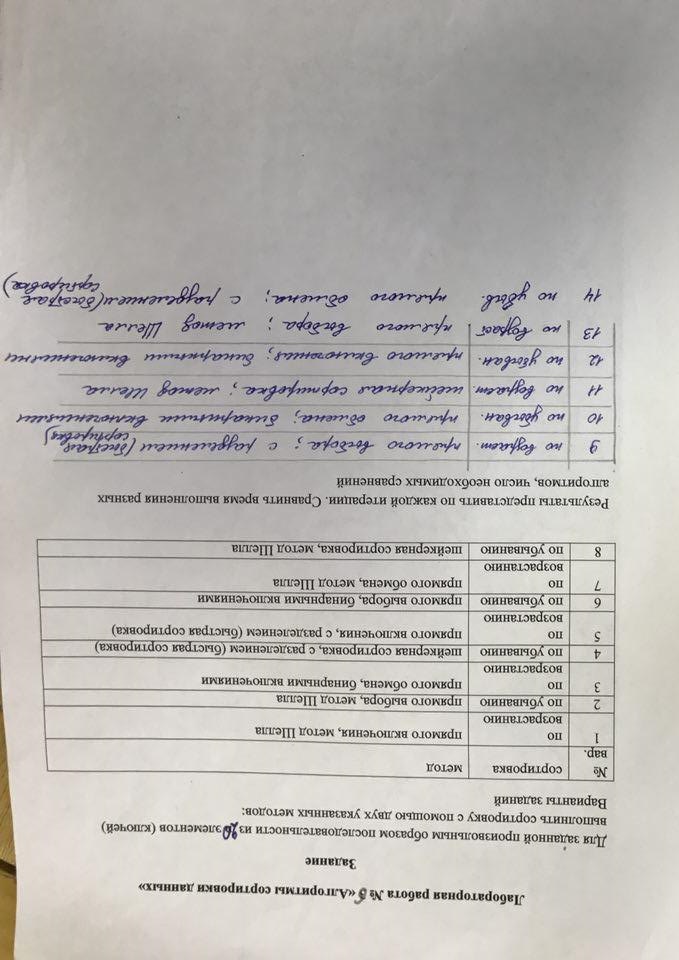 Лабораторная работа № 5 «Алгоритмы сортировки данных»
Задание
Для заданной произвольным образом последовательности из 20 элементов (ключей)
выполнить сортировку с помощью двух указанных методов:
Варианты заданий
№ вар. сортировка метод
1 по возрастанию прямого включения, метод Шелла
2 по убыванию прямого выбора, метод Шелла
3 по возрастанию прямого обмена, бинарными включениями
4 по убыванию шейкерная сортировка, с разделением (быстрая сортировка)
5 по возрастанию прямого включения, с разделением (быстрая сортировка)
6 по убыванию прямого выбора, бинарными включениями
7 по возрастанию прямого обмена, метод Шелла
8 по убыванию шейкерная сортировка, метод Шелла
Результаты представить по каждой итерации. Сравнить время выполнения разных
алгоритмов, число необходимых сравнений
9 по возраст. прямого выбора; с разделением (быстрая сортировка)
10 по убыван. прямого обмена; бинарными включениями
11 по возраст. шейкерная сортировка; метод Шелла
12 по убыван. прямого включения; бинарными включениями
13 по возраст прямого выбора; метод Шелла
14 по убыв. прямого обмена; с разделением (быстрая сортировка)